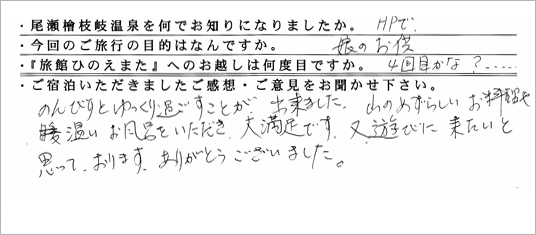 ・尾瀬檜枝岐温泉を何でお知りになりましたか。 HPで.
・今回のご旅行の目的はなんですか。 娘のお供
・『旅館ひのえまた』へのお越しは何度目ですか。 4回目かな?.....
・ご宿泊いただきましたご感想・ご意見をお聞かせ下さい。
のんびりとゆっくり過ごすことが 出来ました. 山のめずらしい お料理や
暖温い お風呂をいただき、大満足です. 又 遊びに 来たいと
思って、おります. ありがとうございました。